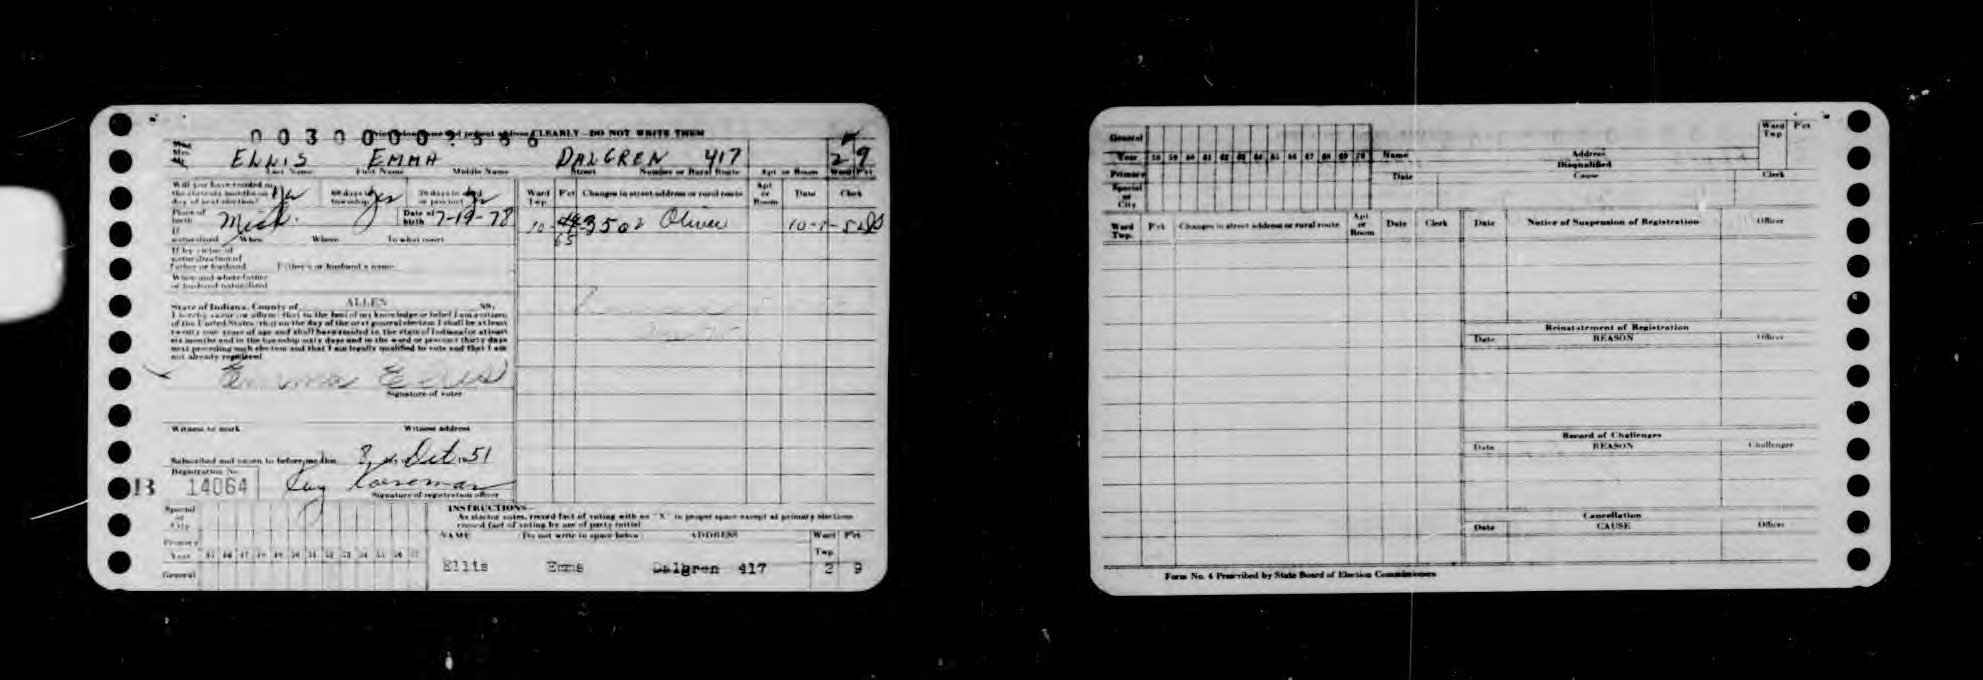 0030000?566
Print your name and present address CLEARLY—DO NOT WRITE THEM
Miss
Mrs.
Mr. ELLIS EMMA DALGREN 417 2 9
Last Name First Name Middle Name Street Number or Rural Route Apt or Room Ward P'ct
Will you have resided in
the state six months on
day of next election? Yes 60 days in township Yes 30 days in ward or precinct Yes
Place of birth Mich. Date of birth 7-19-78
If naturalized When Where To what court
If by virtue of
naturalization of
Father or husband Father's or husband's name
When and where father
or husband naturalized
Ward Twp P'ct Changes in street address or rural route Apt or Room Date Clerk
10- 65 3502 Oliver 10-1-52
State of Indiana, County of ALLEN SS:
I hereby swear (or affirm) that to the best of my knowledge or belief I am a citizen
of the United States; that on the day of the next general election I shall be at least
twenty-one years of age and shall have resided in the state of Indiana for at least
six months and in the township sixty days and in the ward or precinct thirty days
next preceding such election and that I am legally qualified to vote and that I am
not already registered
Emma Ellis
Signature of voter
Witness to mark Witness address
Subscribed and sworn to before me this 8 day Oct 1951
Registration No.
B 14064
Signature of registration officer
Special or City
Primary
Year 45 46 47 48 49 50 51 52 53 54 55 56 57
General
INSTRUCTIONS—
As elector votes, record fact of voting with an "X" in proper space except at primary elections
record fact of voting by use of party initial
NAME (Do not write in space below) ADDRESS Ward Twp P'ct
Ellis Emma Dalgren 417 2 9
General
Year 58 59 60 61 62 63 64 65 66 67 68 69 70
Primary
Special or City
Name Address Ward Twp P'ct
Disqualified
Date Cause Clerk
Ward Twp. P'ct Changes in street address or rural route Apt or Room Date Clerk
Date Notice of Suspension of Registration Officer
Reinstatement of Registration
Date REASON Officer
Record of Challenges
Date REASON Challenger
Cancellation
Date CAUSE Officer
Form No. 4 Prescribed by State Board of Election Commissioners